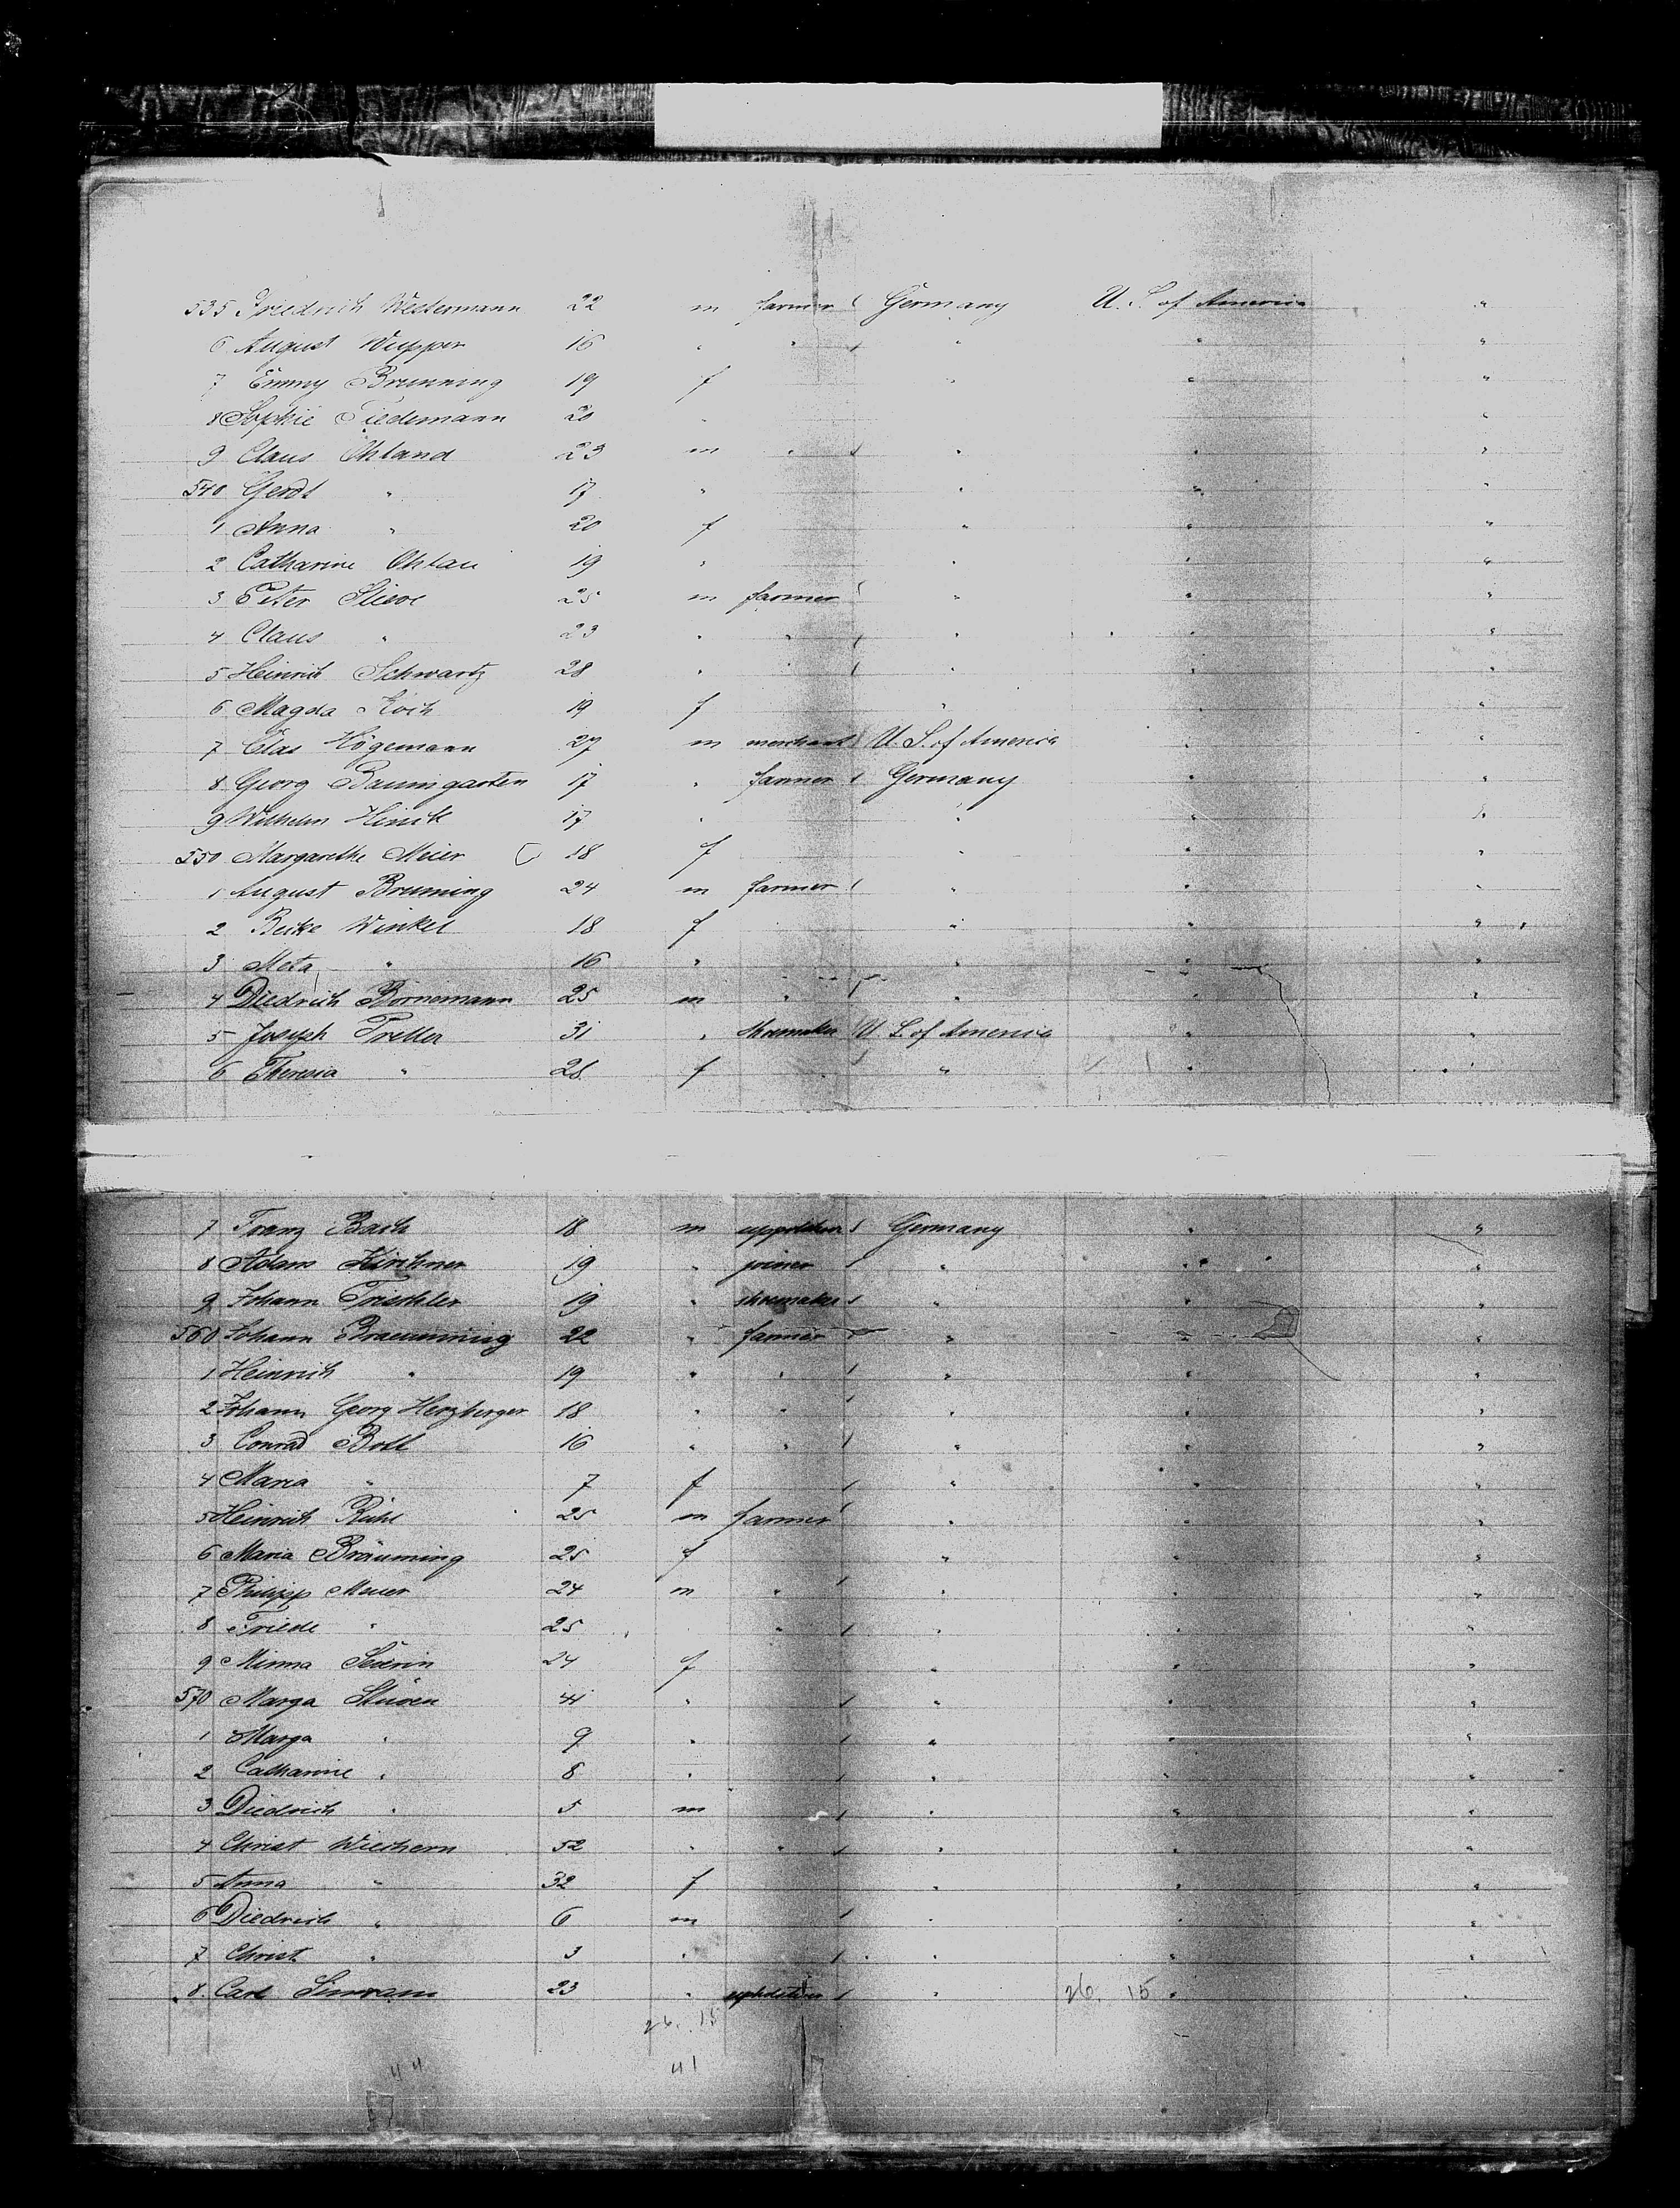 535 Friedrich Westermann 22 m farmer Germany U. S. of America "
6 August Wupper 16 " " " " "
7 Emmy Brunning 19 f " " "
8 Sophie Tiedemann 20 " "
9 Claus Ohland 23 m " " " "
540 Gerdt " 17 " " " "
1 Anna " 20 f " " "
2 Catharine Ohlau 19 " " " "
3 Peter Stieve 25 m farmer " " "
4 Claus " 23 " " " " "
5 Heinrich Schwartz 28 " " " " "
6 Magda Koch 19 f " "
7 Clas Högemann 27 m merchant U. S. of America " "
8 Georg Baumgarten 17 " farmer Germany " "
9 Wilhelm 17 " " " "
550 Margarethe Meier 18 f " " "
1 August Bruning 24 m farmer " " "
2 Beike Winkel 18 f " " "
3 Meta " 16 " " " "
4 Diedrich Bornemann 25 m " " " "
5 Joseph Preller 31 " shoemaker U. S. of America " "
6 Theresia " 28 f " " "
7 Franz Bach 18 m Germany " "
8 Adam Kirchner 19 " joiner " " "
9 Johann 19 " shoemaker " " "
560 Johann Braeunning 22 " farmer " " "
1 Heinrich " 19 " " " " "
2 Johann Georg Herzberger 18 " " " " "
3 Conrad Bott 16 " " " " "
4 Maria " 7 f " " "
5 Heinrich Rühl 25 m farmer " " "
6 Maria Bräuming 25 f " " "
7 Philipp Meier 24 m " " " "
8 Friede " 25 " " " "
9 Minna Severin 24 f " " "
570 Marga Stüven 41 " " " "
1 Marga " 9 " " " "
2 Catharine " 8 " " " "
3 Diedrich " 5 m " " "
4 Christ Wiechern 52 " " " " "
5 Anna " 32 f " " "
6 Diedrich " 6 m " " "
7 Christ " 3 " " " "
8. Carl 23 " " 26. 15 " "
26. 15
44 41